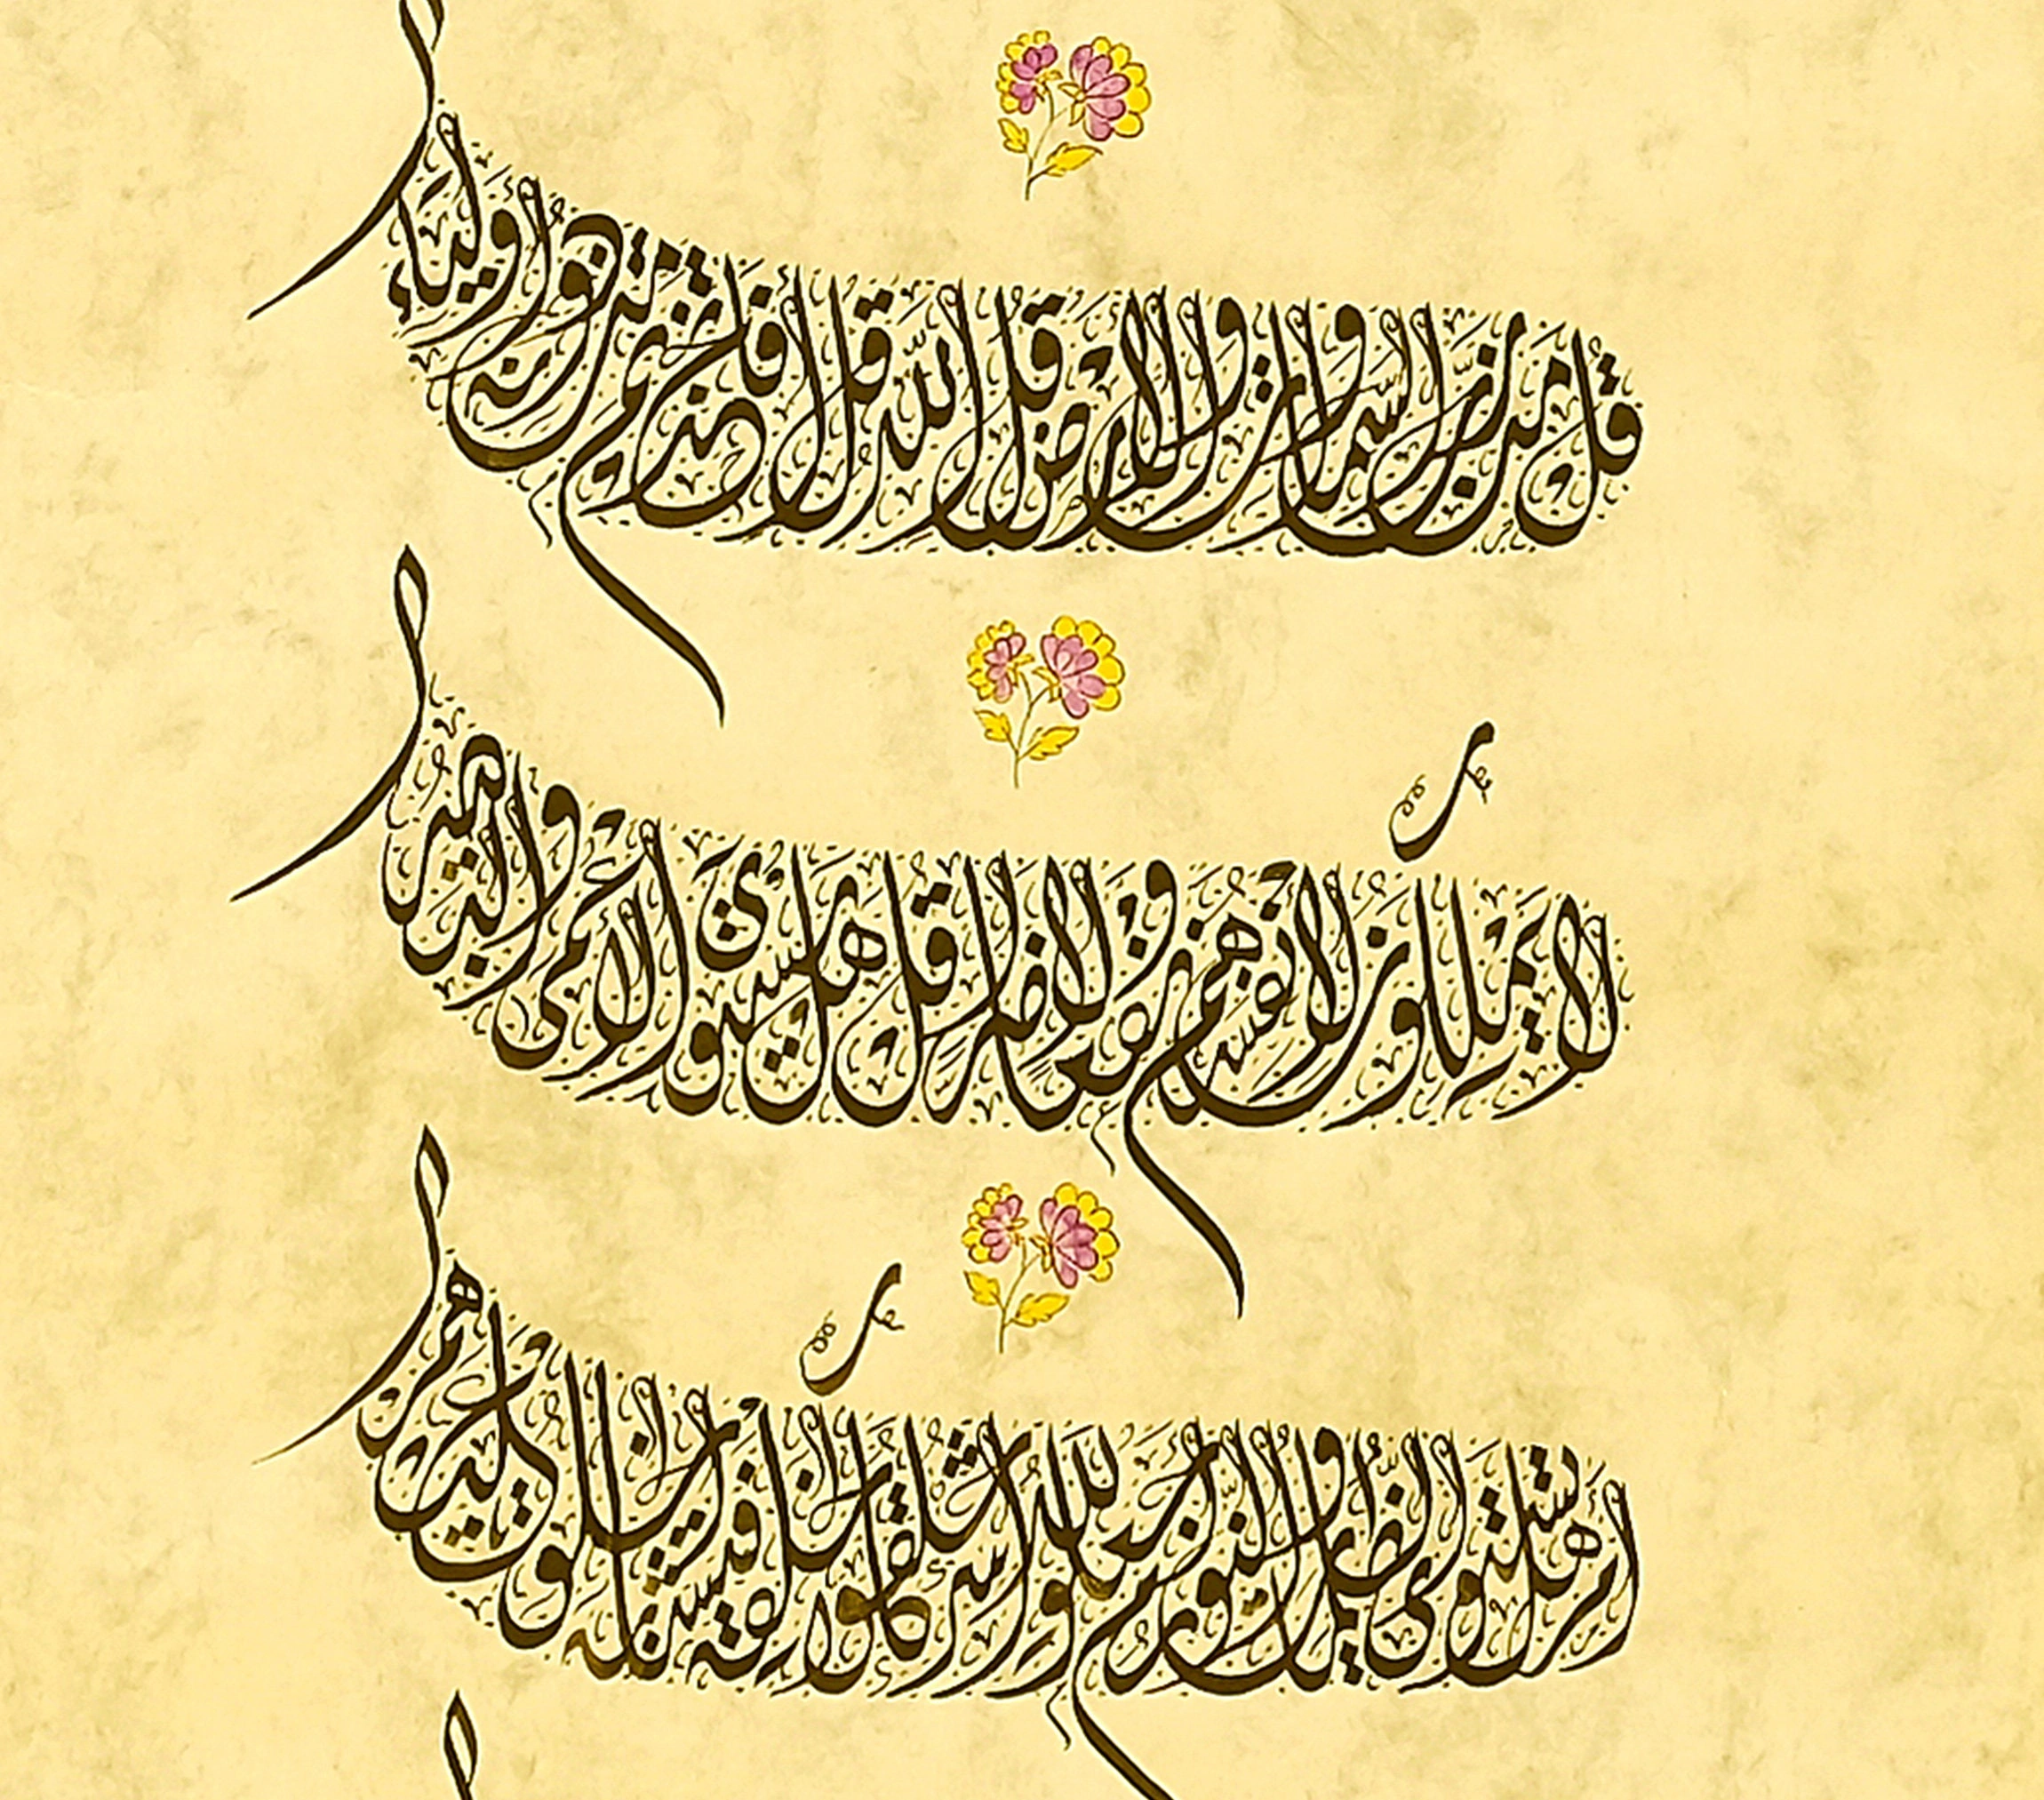 قل من رب السموات والارض قل الله قل أفاتخذتم من دونه أولياء
لا يملكون لانفسهم نفعا ولا ضرا قل هل يستوي الأعمى والبصير
أم هل تستوي الظلمات والنور أم جعلوا لله شركاء خلقوا كخلقه فتشابه الخلق عليهم